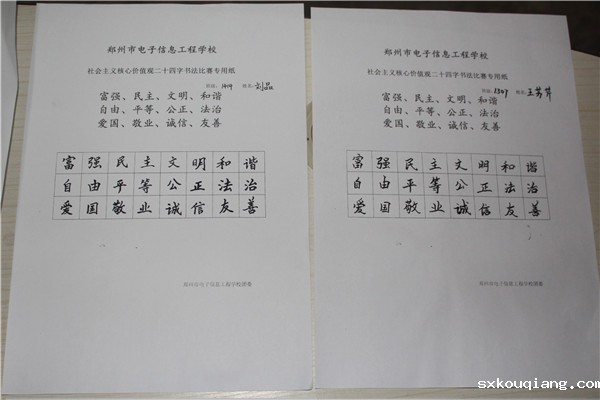 郑州市电子信息工程学校
社会主义核心价值观二十四字书法比赛专用纸
班级: 1404 姓名: 刘晶
富强、民主、文明、和谐
自由、平等、公正、法治
爱国、敬业、诚信、友善
富强民主文明和谐
自由平等公正法治
爱国敬业诚信友善
郑州市电子信息工程学校团委
郑州市电子信息工程学校
社会主义核心价值观二十四字书法比赛专用纸
班级: 1307 姓名: 王
富强、民主、文明、和谐
自由、平等、公正、法治
爱国、敬业、诚信、友善
富强民主文明和谐
自由平等公正法治
爱国敬业诚信友善
郑州市电子信息工程学校团委
sxkouqiang.com